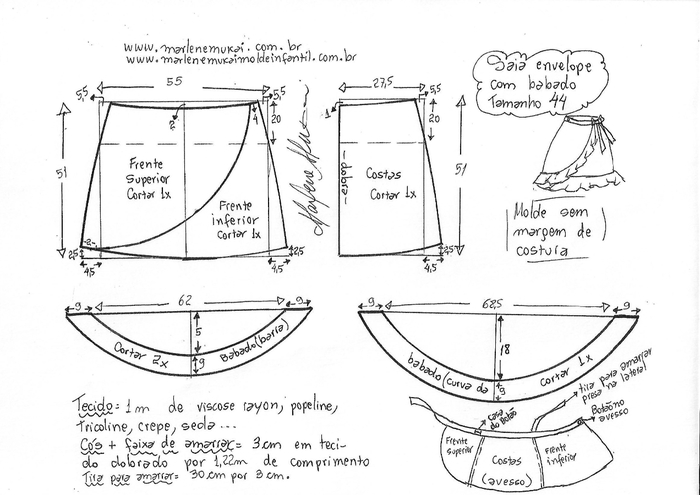 www.marlenemukai.com.br
www.marlenemukaimoldeinfantil.com.br
Saia envelope
com babado
Tamanho 44
55
5,5
5,5
2
4
20
51
Frente
Superior
Cortar 1x
Frente
inferior
Cortar 1x
2
2,5
2,5
4,5
4,5
27,5
5,5
1
20
51
dobra
Costas
Cortar 1x
2,5
4,5
Molde sem
margem de
costura
9
62
9
5
9
Cortar 2x
Babado (barra)
9
62,5
9
18
9
babado (curva da
Cortar 1x
Tecido = 1m de viscose rayon, popeline,
Tricoline, crepe, seda...
Cós + faixa de amarrar = 3cm em teci-
do dobrado por 1,22m de comprimento
Tira para amarrar = 30cm por 3cm.
casa
do botão
tira para amarrar
presa na lateral
Botão no
avesso
Frente
superior
Costas
(avesso)
Frente
inferior